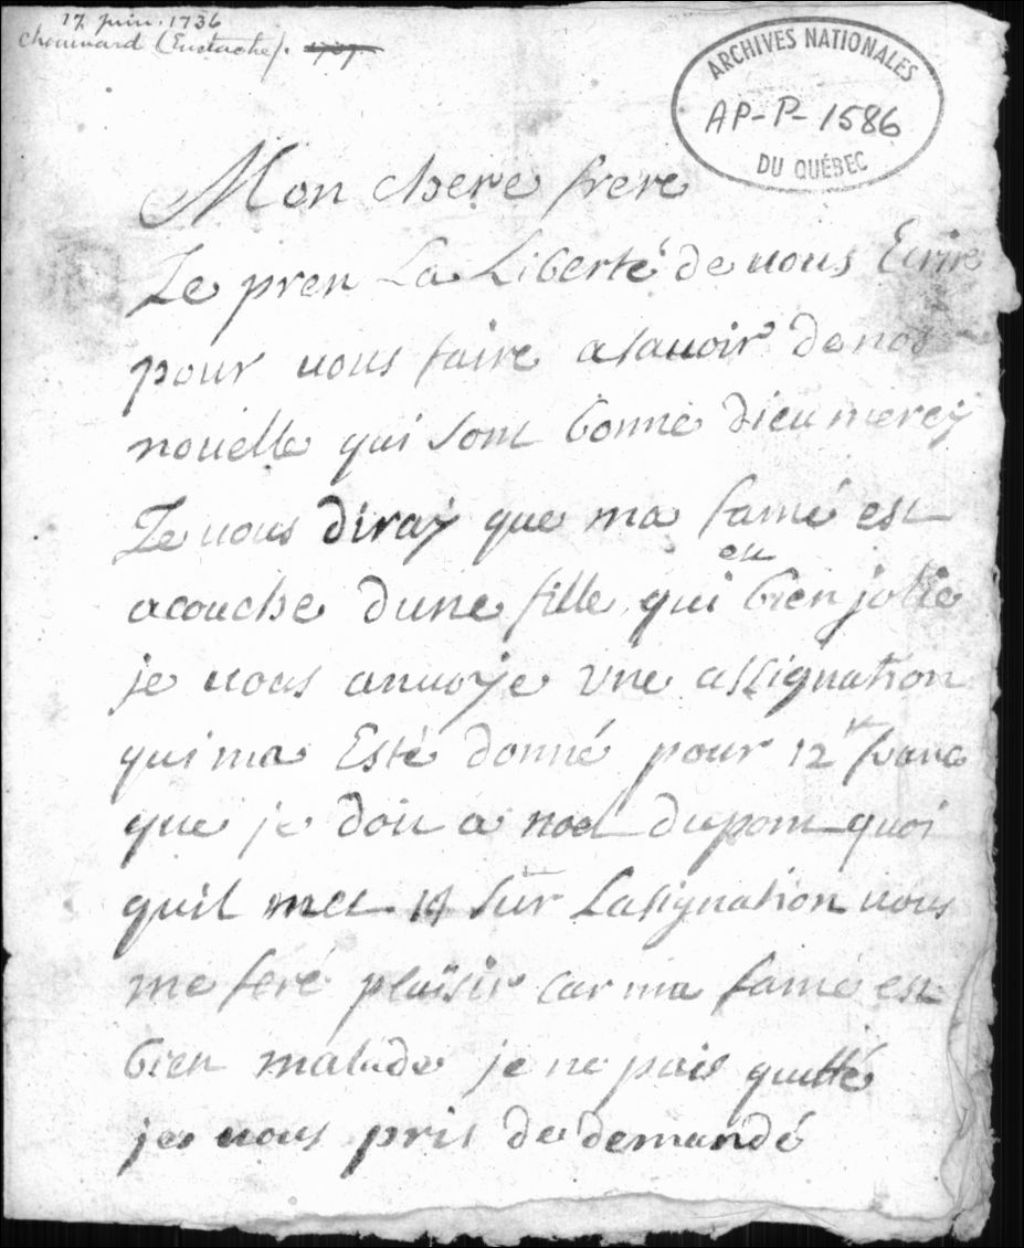 17 juin. 1736
chouinard (Eustache).
ARCHIVES NATIONALES
AP-P-1586
DU QUÉBEC
Mon chere frere
Je pren La Liberté de uous Ecrire
pour uous faire asauoir de nos
nouelle qui sont bonne dieu mercy
Je uous diray que ma famé est
acouche dune fille qui est bien jolie
je uous anuoye une assignation
qui ma Esté donné pour 12 franc
que je doit a noel dupont quoi
quil met 14 sur Lasignation uous
me feré plaisir car ma famé est
bien malade je ne puis quitté
je uous pris de demandé